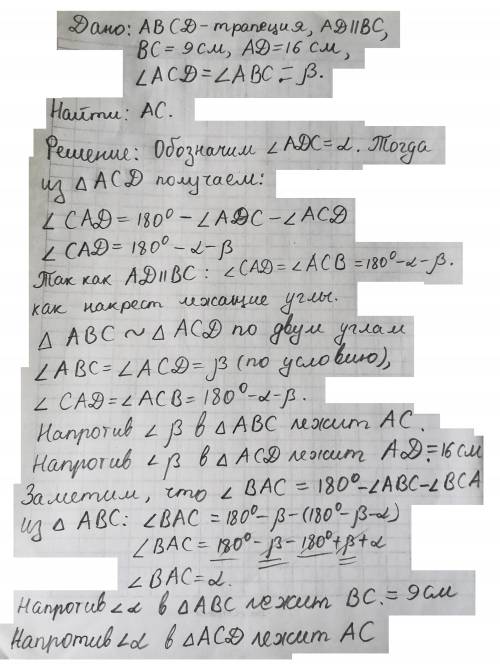 Дано: ABCD-трапеция, AD||BC,
BC = 9 см, AD = 16 см,
∠ACD = ∠ABC = β.
Найти: AC.
Решение: Обозначим ∠ADC = α. Тогда
из △ACD получаем:
∠CAD = 180° - ∠ADC - ∠ACD
∠CAD = 180° - α - β
Так как AD||BC: ∠CAD = ∠ACB = 180° - α - β.
как накрест лежащие углы.
△ABC ~ △ACD по двум углам
∠ABC = ∠ACD = β (по условию),
∠CAD = ∠ACB = 180° - α - β.
Напротив ∠β в △ABC лежит AC.
Напротив ∠β в △ACD лежит AD = 16 см
Заметим, что ∠BAC = 180° - ∠ABC - ∠BCA
из △ABC: ∠BAC = 180° - β - (180° - β - α)
∠BAC = 180° - β - 180° + β + α
∠BAC = α.
Напротив ∠α в △ABC лежит BC = 9 см
Напротив ∠α в △ACD лежит AC